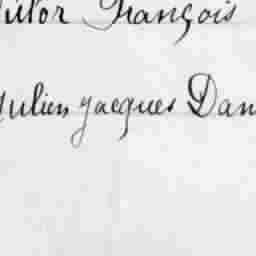 Victor François
Julien Jacques Dan